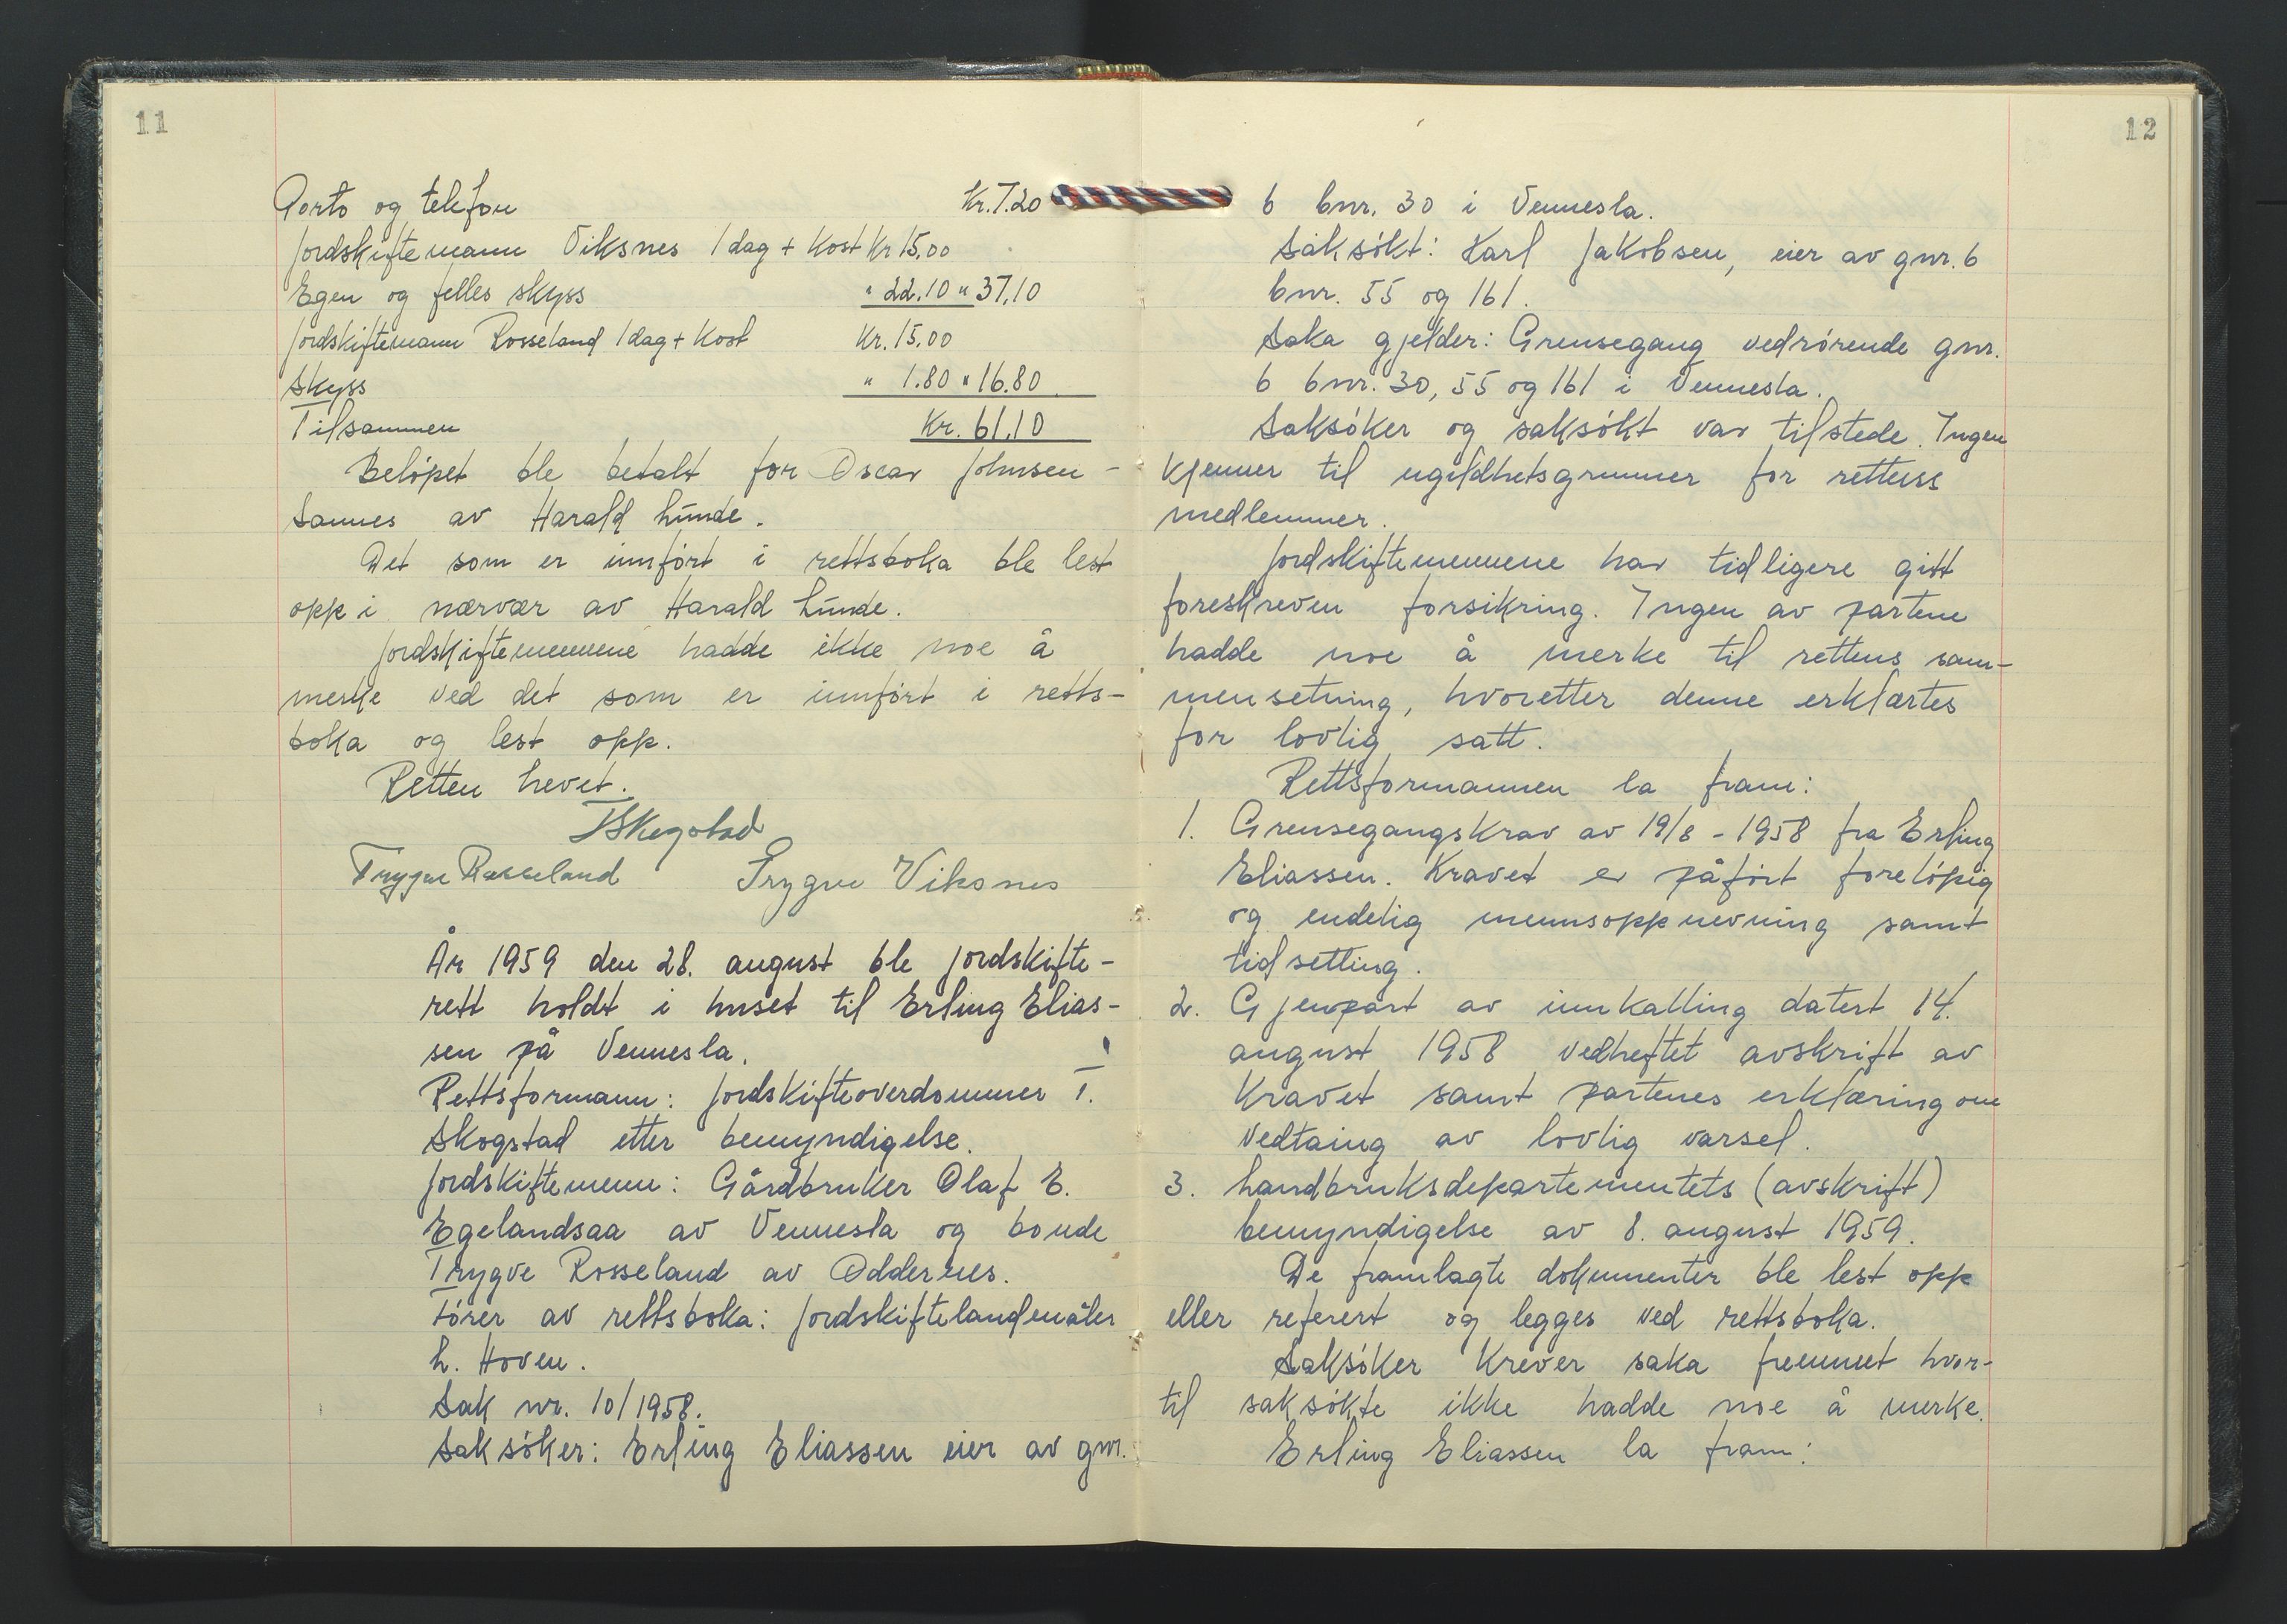 11
Porto og telefon Kr. 7.20
Jordskiftemann Viksnes 1 dag + Kost Kr 15,00
Egen og felles skyss " 22.10 " 37,10
Jordskiftemann Rosseland 1 dag + Kost Kr. 15,00
Skyss " 1.80 " 16.80
Tilsammen Kr. 61,10
Beløpet ble betalt for Oscar Johnsen -
Sannes av Harald Lunde.
Det som er innført i rettsboka ble lest
opp i nærvær av Harald Lunde.
Jordskiftemennene hadde ikke noe å
merke ved det som er innført i retts-
boka og lest opp.
Retten hevet.
T Skogstad
Trygve Rosseland Trygve Viksnes
År 1959 den 28. august ble jordskifte-
rett holdt i huset til Erling Elias-
sen på Vennesla.
Rettsformann: Jordskifteoverdommer T.
Skogstad etter bemyndigelse.
Jordskiftemenn: Gårdbruker Olaf E.
Egelandsaa av Vennesla og bonde
Trygve Rosseland av Oddernes.
Fører av rettsboka: Jordskiftelandmåler
L. Hoven.
Sak nr. 10/1958.
Saksøker: Erling Eliassen eier av gnr.
12
6 bnr. 30 i Vennesla.
Saksøkt: Karl Jakobsen, eier av gnr. 6
bnr. 55 og 161.
Saka gjelder: Grensegang vedrørende gnr.
6 bnr. 30, 55 og 161 i Vennesla.
Saksøker og saksøkt var tilstede. Ingen
kjenner til ugildhetsgrunner for rettens
medlemmer.
Jordskiftemennene har tidligere gitt
foreskreven forsikring. Ingen av partene
hadde noe å merke til rettens sam-
mensetning, hvoretter denne erklærtes
for lovlig satt.
Rettsformannen la fram:
1. Grensegangskrav av 19/8 - 1958 fra Erling
Eliassen. Kravet er påført foreløpig
og endelig mennsoppnevning samt
tidsetting.
2. Gjenpart av innkalling datert 14.
august 1958 vedheftet avskrift av
kravet samt partenes erklæring om
vedtaing av lovlig varsel.
3. Landbruksdepartementets (avskrift)
bemyndigelse av 8. august 1959.
De framlagte dokumenter ble lest opp
eller referert og legges ved rettsboka.
Saksøker krever saka fremmet hvor-
til saksøkte ikke hadde noe å merke.
Erling Eliassen la fram: